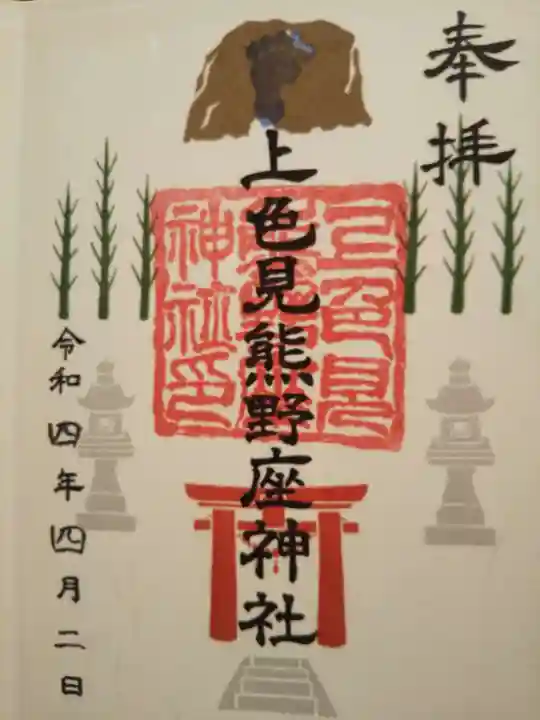 奉拝
上色見熊野座神社
上色見
熊野座
神社印
令和四年四月二日